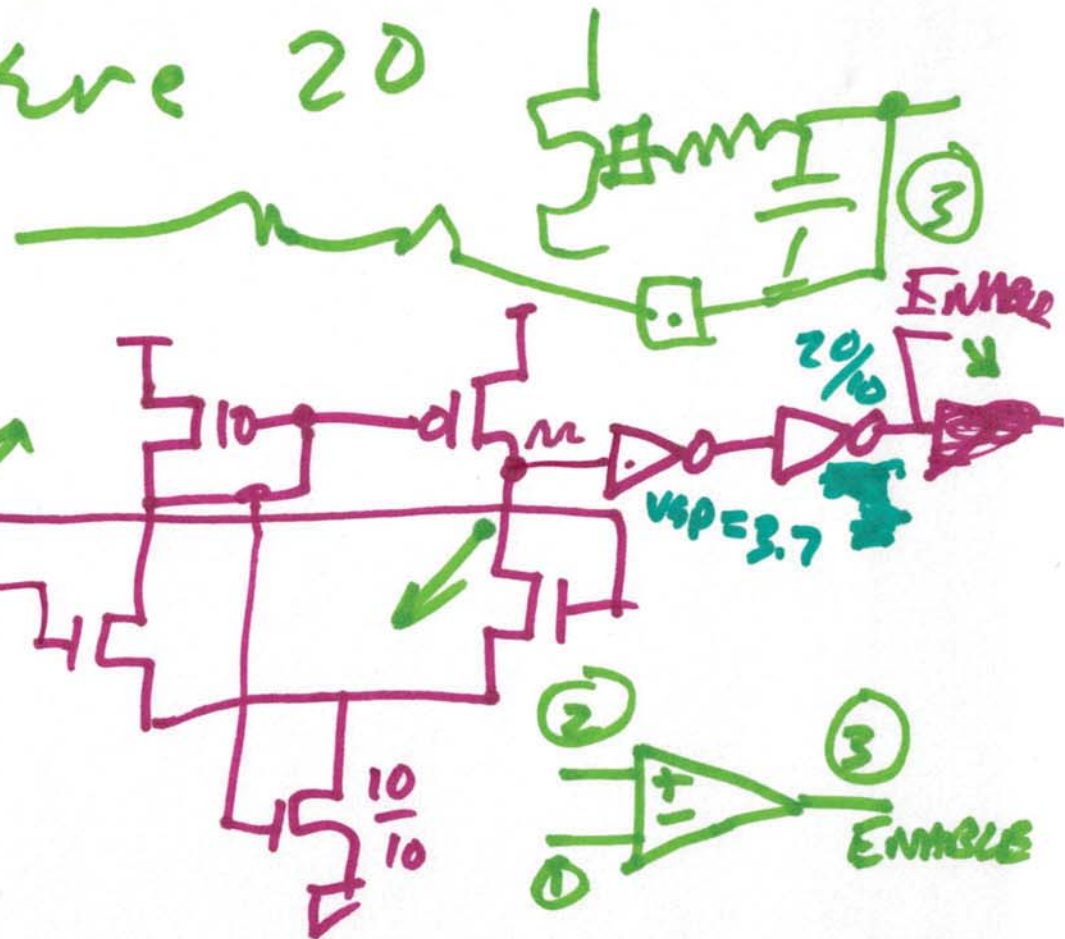 ure 20
3
ENABLE
20/10
10
VSP=3.7
2
3
+
-
10
10
ENABLE
1